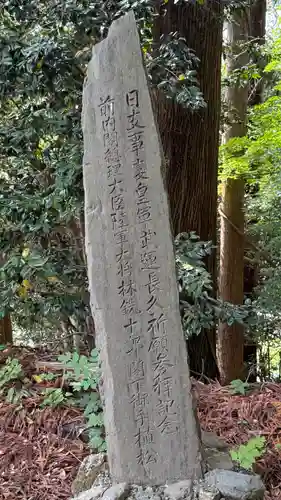 日支事變皇軍武運長久祈願参拝記念
前内閣総理大臣陸軍大将林銑十郎閣下御手植松